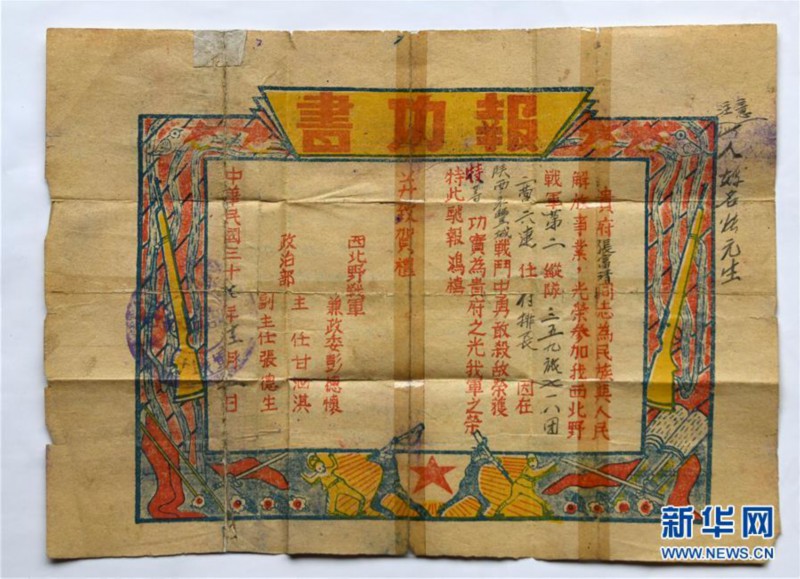 報功書
注意
貴府張富清同志為民族與人民
解放事業，光榮參加我西北野
戰軍第二縱隊三五九旅七一八團
二營六連 任 付排長 因在
陝西永豐城戰鬥中勇敢殺敵榮獲
特等功實為貴府之光我軍之榮
特此馳報鴻禧
并致賀禮
西北野戰軍
兼政委彭德懷
政治部
主任甘泗淇
副主任張德生
中華民國三十七年十二月 日
新华网
WWW.NEWS.CN